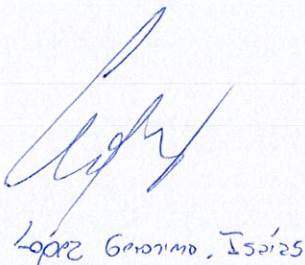 López Geronimo, Isaías